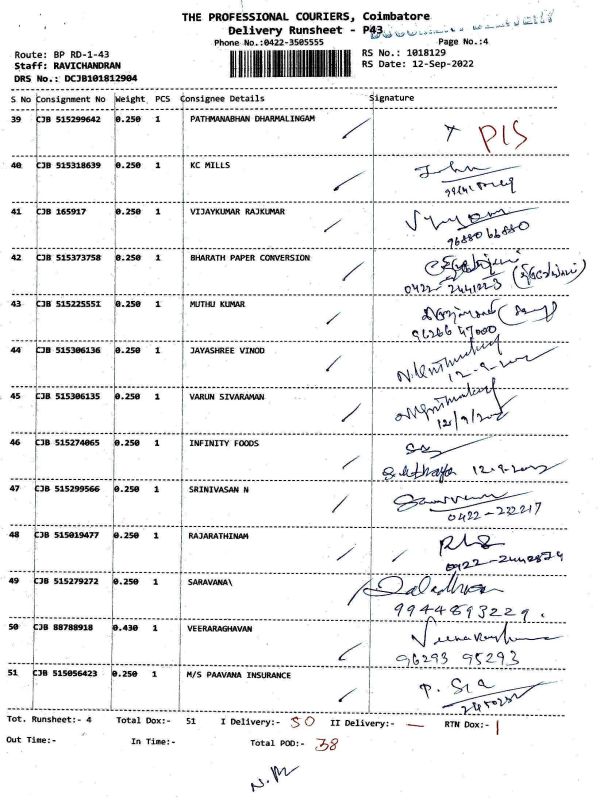 THE PROFESSIONAL COURIERS, Coimbatore
Delivery Runsheet - P43
DOCUMENT DELIVERY
Phone No.:0422-3505555 Page No.:4
Route: BP RD-1-43 RS No.: 1018129
Staff: RAVICHANDRAN RS Date: 12-Sep-2022
DRS No.: DCJB101812904
S No Consignment No Weight PCS Consignee Details Signature
39 CJB 515299642 0.250 1 PATHMANABHAN DHARMALINGAM
40 CJB 515318639 0.250 1 KC MILLS John
41 CJB 165917 0.250 1 VIJAYKUMAR RAJKUMAR
9688066880
42 CJB 515373758 0.250 1 BHARATH PAPER CONVERSION
0422-2441223
43 CJB 515225551 0.250 1 MUTHU KUMAR
96266 47000
44 CJB 515306136 0.250 1 JAYASHREE VINOD
45 CJB 515306135 0.250 1 VARUN SIVARAMAN
46 CJB 515274065 0.250 1 INFINITY FOODS
12-9-2022
47 CJB 515299566 0.250 1 SRINIVASAN N
48 CJB 515019477 0.250 1 RAJARATHINAM
49 CJB 515279272 0.250 1 SARAVANA\
9944893229.
50 CJB 88788918 0.430 1 VEERARAGHAVAN
96293 95293
51 CJB 515056423 0.250 1 M/S PAAVANA INSURANCE
Tot. Runsheet:- 4 Total Dox:- 51 I Delivery:- 50 II Delivery:- — RTN Dox:- 1
Out Time:- In Time:- Total POD:- 38